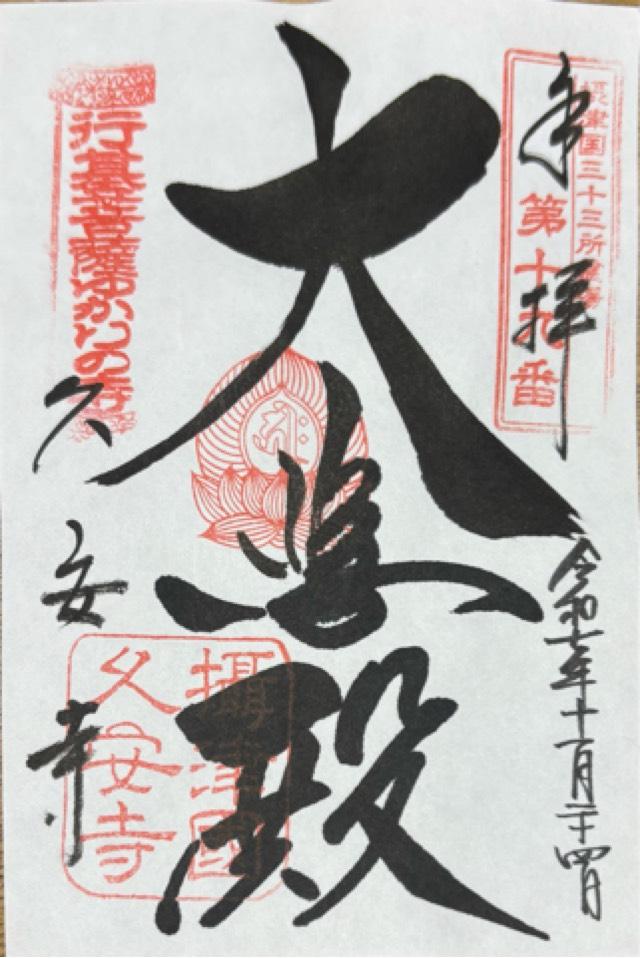 摂津国三十三所
第十九番
奉拝
令和七年十一月二十四日
大悲殿
行基菩薩ゆかりの寺
久安寺
攝津國
久安寺